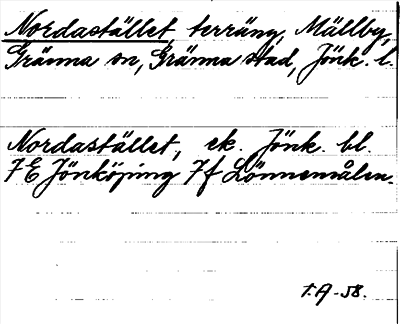 Nordastället terräng, Mällby,
Gränna sn, Gränna stad, Jönk. l.
Nordastället, ek. Jönk. bl.
7E Jönköping 7f Lönnemålen.
T.A -58.